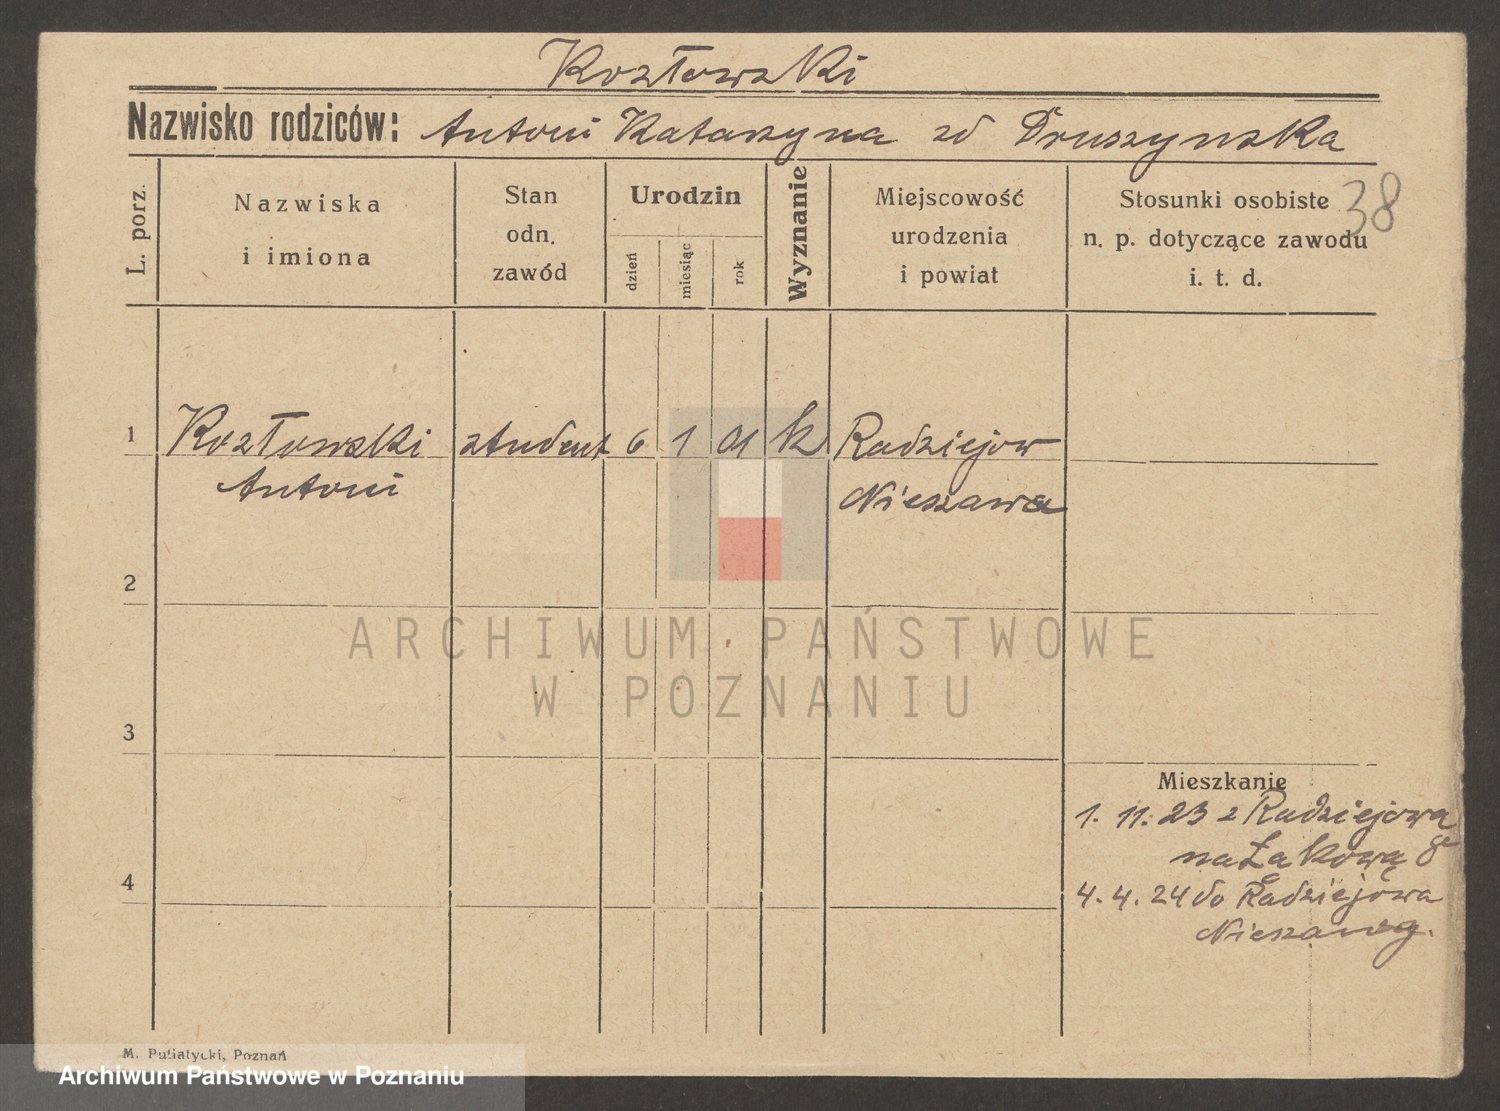 Kozłowski
Nazwisko rodziców: Antoni Katarzyna zd Pruszynska
38
L. porz.
Nazwiska
i imiona
Stan
odn.
zawód
Urodzin
dzień
miesiąc
rok
Wyznanie
Miejscowość
urodzenia
i powiat
Stosunki osobiste
n. p. dotyczące zawodu
i. t. d.
1 Kozłowski student 6 1 01 k Radziejow
Antoni Nieszawa
2
ARCHIWUM PAŃSTWOWE
W POZNANIU
3
Mieszkanie
1. 11. 23 z Radziejowa
na Łąkową 8
4
4. 4. 24 do Radziejowa
M. Putiatycki, Poznań
Archiwum Państwowe w Poznaniu